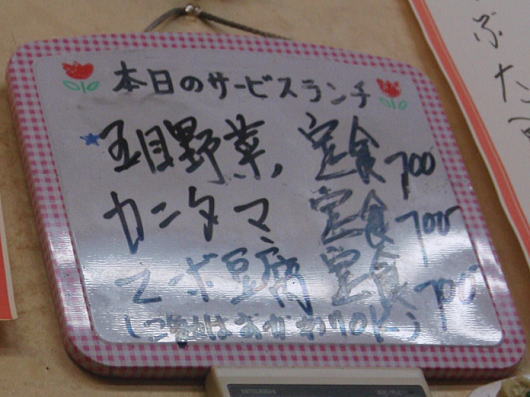 本日のサービスランチ
五目野菜、定食 700
カニタマ 定食 700
マーボ豆腐定食 700
(ご飯はおかわりOK)
MITSUBISHI
ぶた